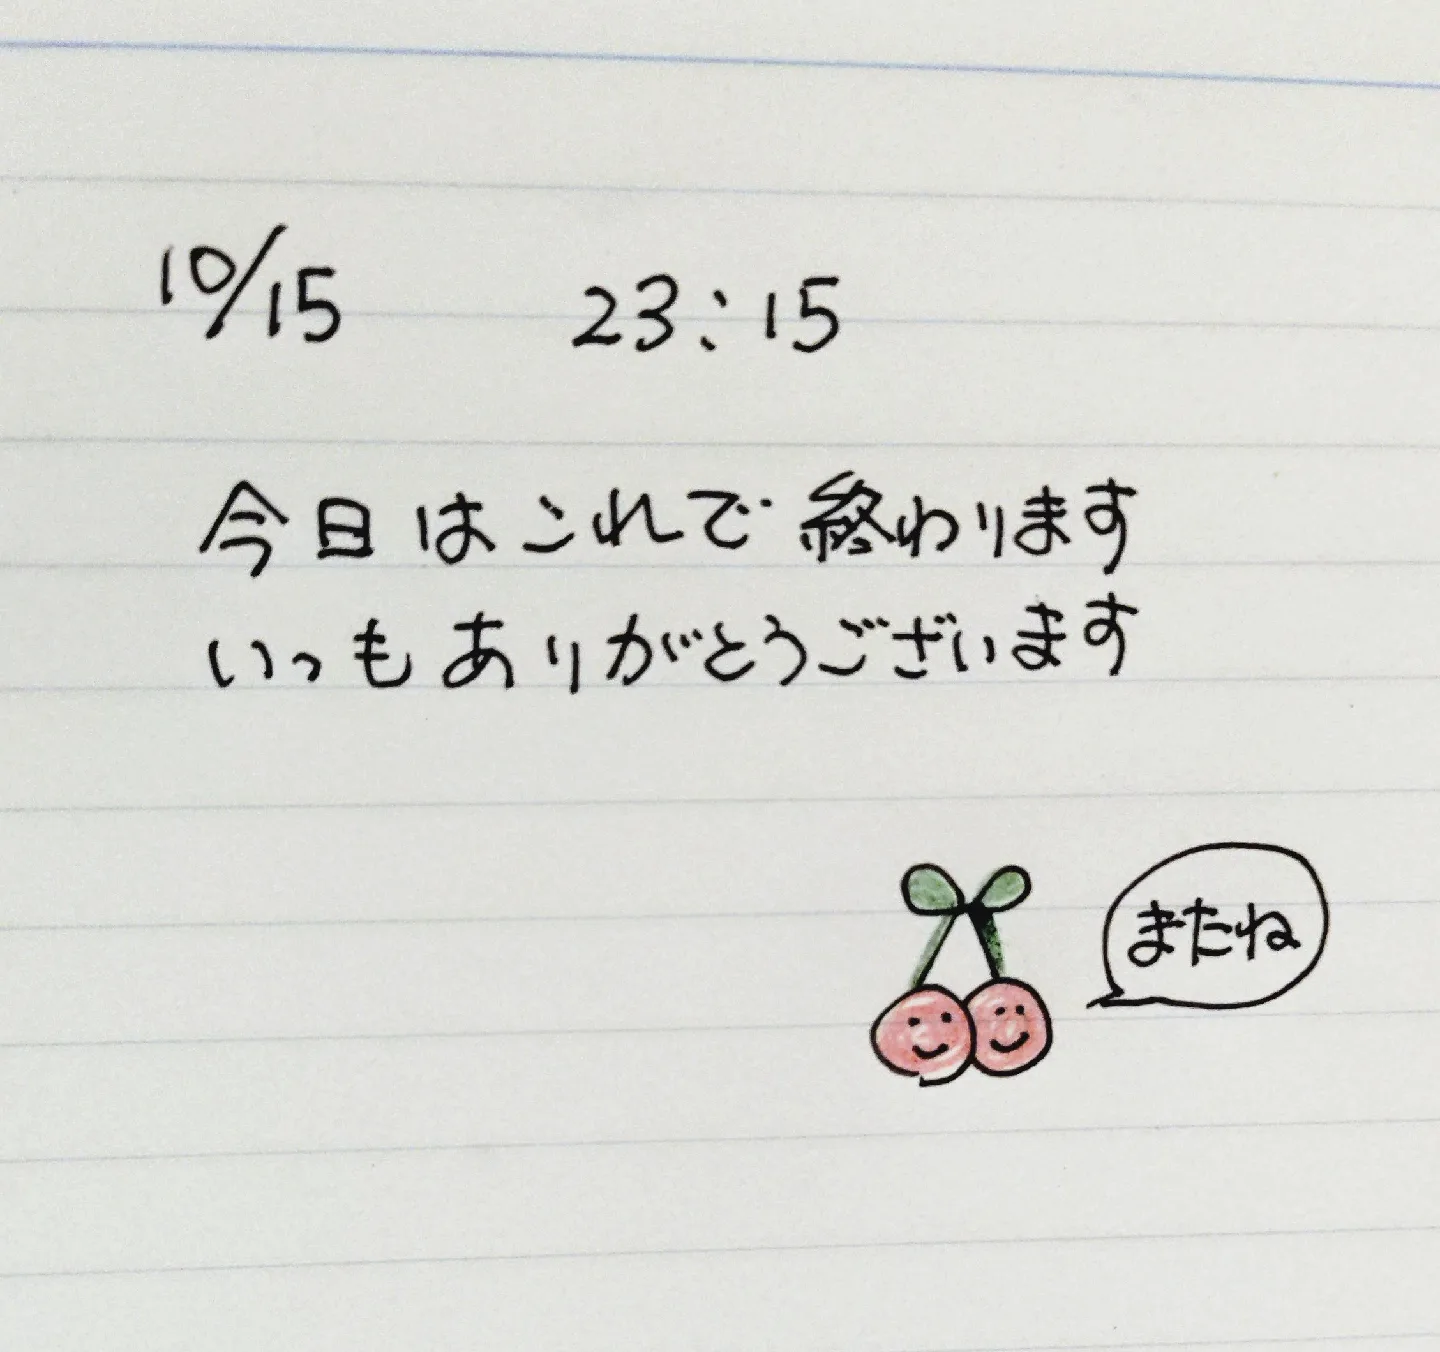 10/15 23:15
今日はこれで終わります
いつもありがとうございます
またね